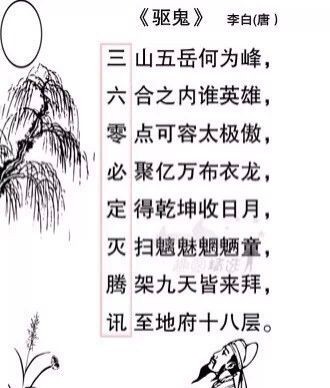 《驱鬼》 李白(唐)
三山五岳何为峰，
六合之内谁英雄，
零点可容太极傲，
必聚亿万布衣龙，
定得乾坤收日月，
灭扫魑魅魍魉童，
腾架九天皆来拜，
讯至地府十八层。